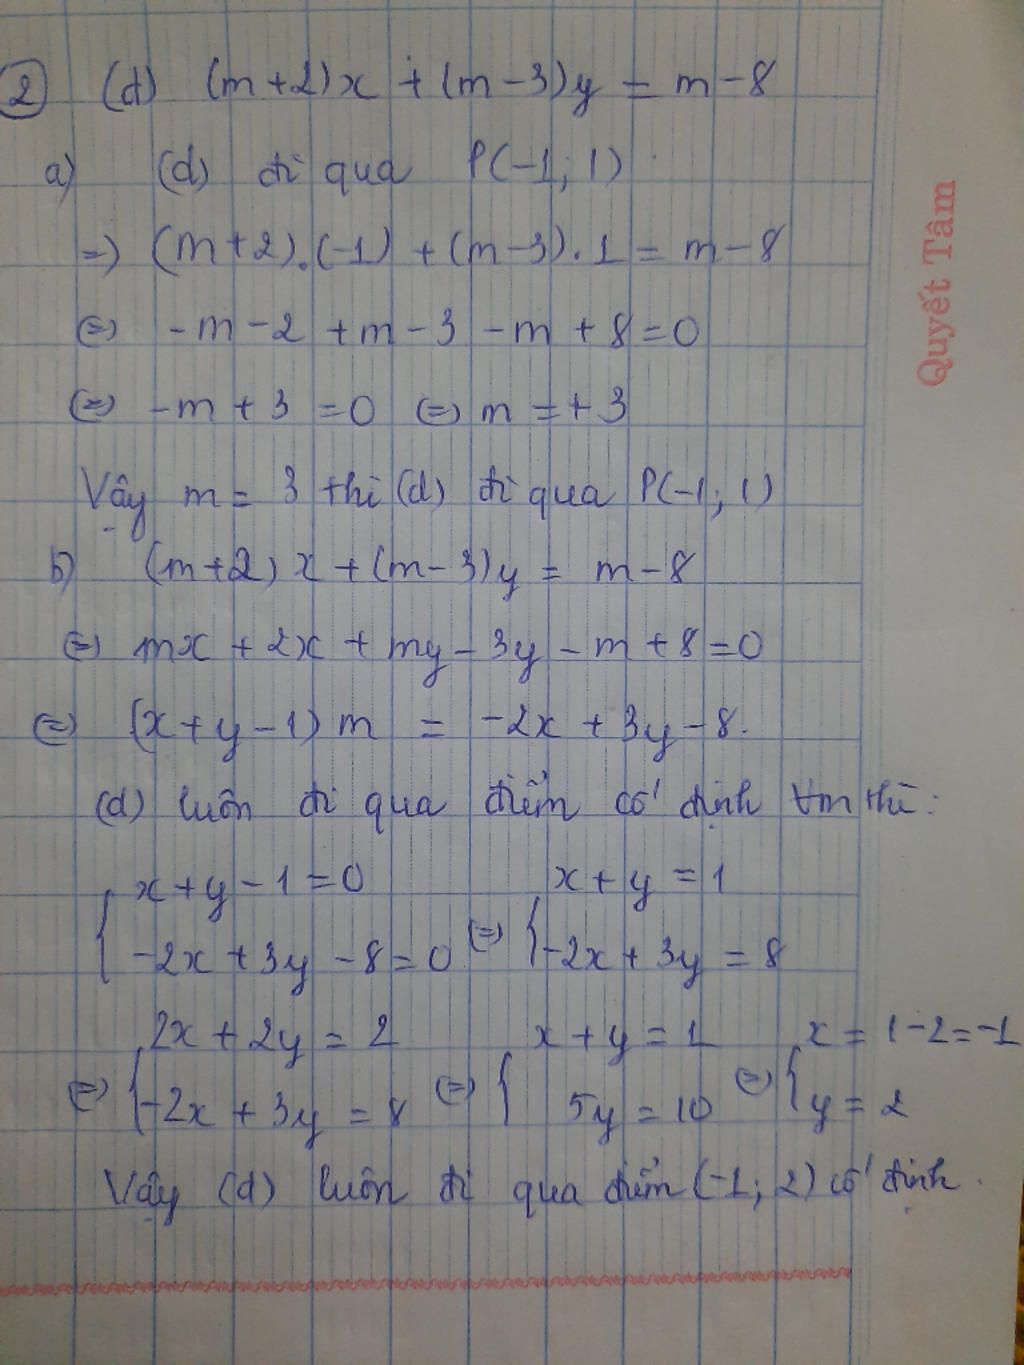 ② (d) (m+2)x + (m-3)y = m-8
a) (d) đi qua P(-1; 1)
=> (m+2).(-1) + (m-3).1 = m-8
(=) -m-2 +m-3 -m +8=0
(=) -m+3 =0 (=) m =+3
Vậy m = 3 thì (d) đi qua P(-1; 1)
b) (m+2) x + (m-3)y = m-8
(=) mx + 2x + my - 3y - m + 8 = 0
(=) (x+y-1) m = -2x + 3y - 8.
(d) luôn đi qua điểm cố định ∀m thì:
{ x+y-1=0 (=) { x+y=1
-2x+3y-8=0 -2x+3y=8
(=) { 2x+2y=2 (=) { x+y=1 (=) { x=1-2=-1
-2x+3y=8 5y=10 y=2
Vậy (d) luôn đi qua điểm (-1; 2) cố định.
Quyết Tâm